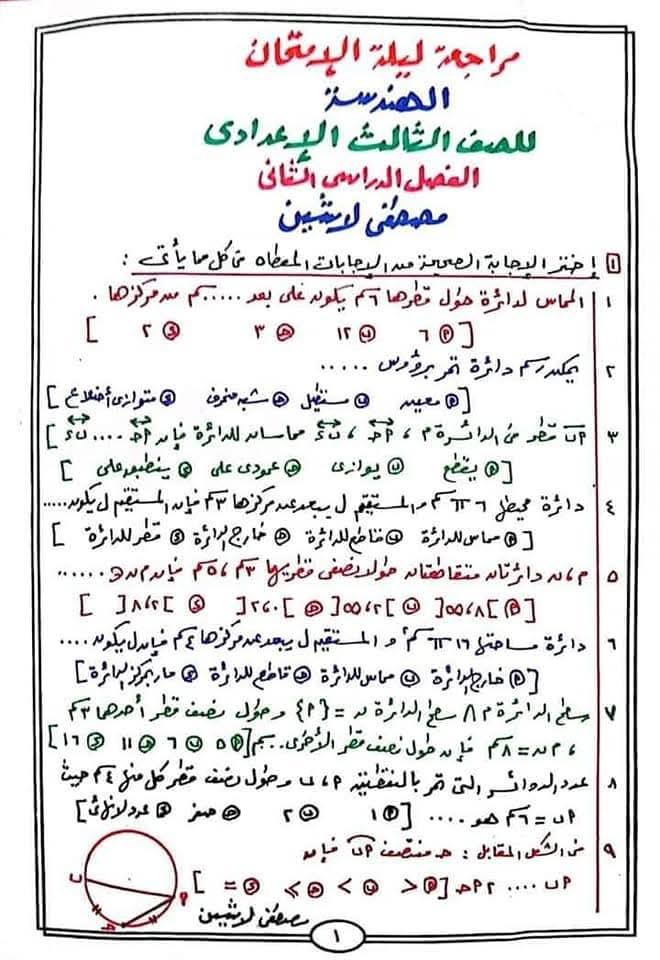 مراجعة ليلة الإمتحان
الهندسة
للصف الثالث الإعدادى
الفصل الدراسى الثانى
مصطفى لاشين
١ إختر الإجابة الصحيحة من الإجابات المعطاه فى كل مما يأتى :
١ المماس لدائرة طول قطرها ٦ كم يكون على بعد ..... كم من مركزها .
[ P ٦ ب ١٢ ح ٣ ء ٢ ]
٢ يمكن رسم دائرة تمر برؤوس .....
[ P معين ب مستطيل ح شبه منحرف ء متوازى أضلاع ]
٣ P ب قطر فى الدائرة م ، P ح ، ب ء مماسان للدائرة فإن P ح .... ب ء
[ P يقطع ب يوازى ح عمودى على ء ينطبق على ]
٤ دائرة محيطها ٦ π كم والمستقيم ل يبعد عن مركزها ٣ كم فإن المستقيم ل يكون .....
[ P مماس للدائرة ب قاطع للدائرة ح خارج الدائرة ء قطر للدائرة ]
٥ م ، ن دائرتان متقاطعتان طولا نصفى قطريهما ٣ كم ، ٥ كم فإن م ن ∈ ......
[ P ]٨ ، ∞[ ب ]٢ ، ∞[ ح ]٠ ، ٢[ ء ]٢ ، ٨[ ]
٦ دائرة مساحتها ١٦ π كم٢ و المستقيم ل يبعد عن مركزها ٤ كم فإن ل يكون ....
[ P خارج الدائرة ب مماس للدائرة ح قاطع للدائرة ء مار بمركز الدائرة ]
٧ سطح الدائرة م ∩ سطح الدائرة ن = {P} وطول نصف قطر أحدهما ٣ كم
، م ن = ٨ كم فإن طول نصف قطر الأخرى .. كم [ P ٥ ب ٦ ح ١١ ء ١٦ ]
٨ عدد الدوائر التى تمر بالنقطتين P ، ب وطول نصف قطر كل منها ٤ كم حيث
P ب = ٦ كم هو .... [ P ١ ب ٢ ح صفر ء عدد لانهائى ]
٩ فى الشكل المقابل : ح منتصف P ب فإن
P ب .... ٢ P ح [ P > ب < ح ≥ ء = ]
ب
P
ح
مصطفى لاشين
١